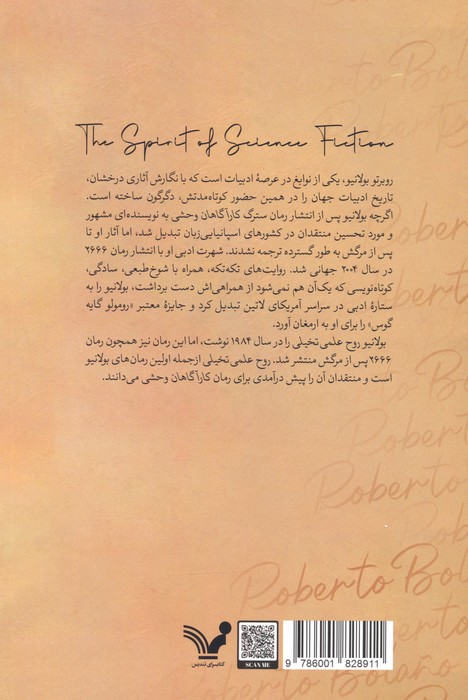 The Spirit of Science Fiction
روبرتو بولانیو، یکی از نوابغ در عرصهٔ ادبیات است که با نگارش آثاری درخشان،
تاریخ ادبیات جهان را در همین حضور کوتاه‌مدتش، دگرگون ساخته است.
اگرچه بولانیو پس از انتشار رمان سترگ کارآگاهان وحشی به نویسنده‌ای مشهور
و مورد تحسین منتقدان در کشورهای اسپانیایی‌زبان تبدیل شد، اما آثار او تا
پس از مرگش به طور گسترده ترجمه نشدند. شهرت ادبی او با انتشار رمان ۲۶۶۶
در سال ۲۰۰۴ جهانی شد. روایت‌های تکه‌تکه، همراه با شوخ‌طبعی، سادگی،
کوتاه‌نویسی که یک‌آن هم نمی‌شود از همراهی‌اش دست برداشت، بولانیو را به
ستارهٔ ادبی در سراسر آمریکای لاتین تبدیل کرد و جایزهٔ معتبر «رومولو گایه
گوس» را برای او به ارمغان آورد.
بولانیو روح علمی‌تخیلی را در سال ۱۹۸۴ نوشت، اما این رمان نیز همچون رمان
۲۶۶۶ پس از مرگش منتشر شد. روح علمی‌تخیلی ازجمله اولین رمان‌های بولانیو
است و منتقدان آن را پیش درآمدی برای رمان کارآگاهان وحشی می‌دانند.
Roberto Bo
Roberto
Roberto
Roberto Bo
Robert
Roberto
Roberto Bol
Roberto Bo
Roberto Bolaño
کتابسرای تندیس
SCAN ME
9 786001 828911